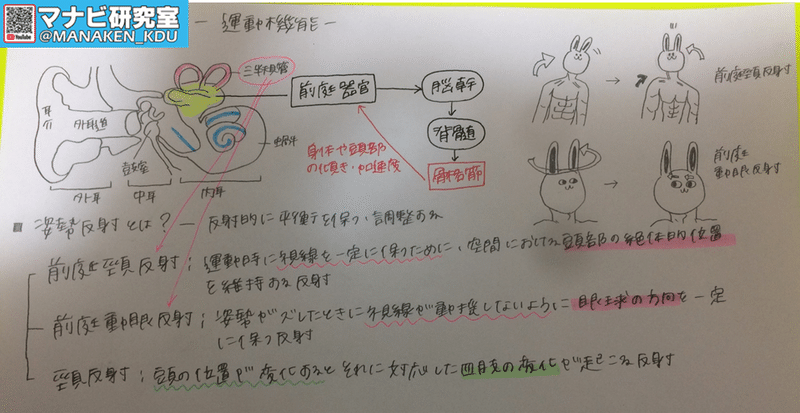 マナビ研究室
@MANAKEN_KDU
YouTube
― 運動機能 ―
三半規管
前庭器官
脳幹
脊髄
骨格筋
身体や頭部
の傾き・加速度
耳介
外耳道
鼓室
蝸牛
外耳
中耳
内耳
前庭頸反射
前庭
動眼反射
■ 姿勢反射とは？ ― 反射的に平衡を保つ、調整する
前庭頸反射；運動時に視線を一定に保つために、空間における頭部の絶体的位置
を維持する反射
前庭動眼反射；姿勢がズレたときに視線が動揺しないように眼球の方向を一定
に保つ反射
頸反射；頭の位置が変化するとそれに対応した四肢の変化が起こる反射